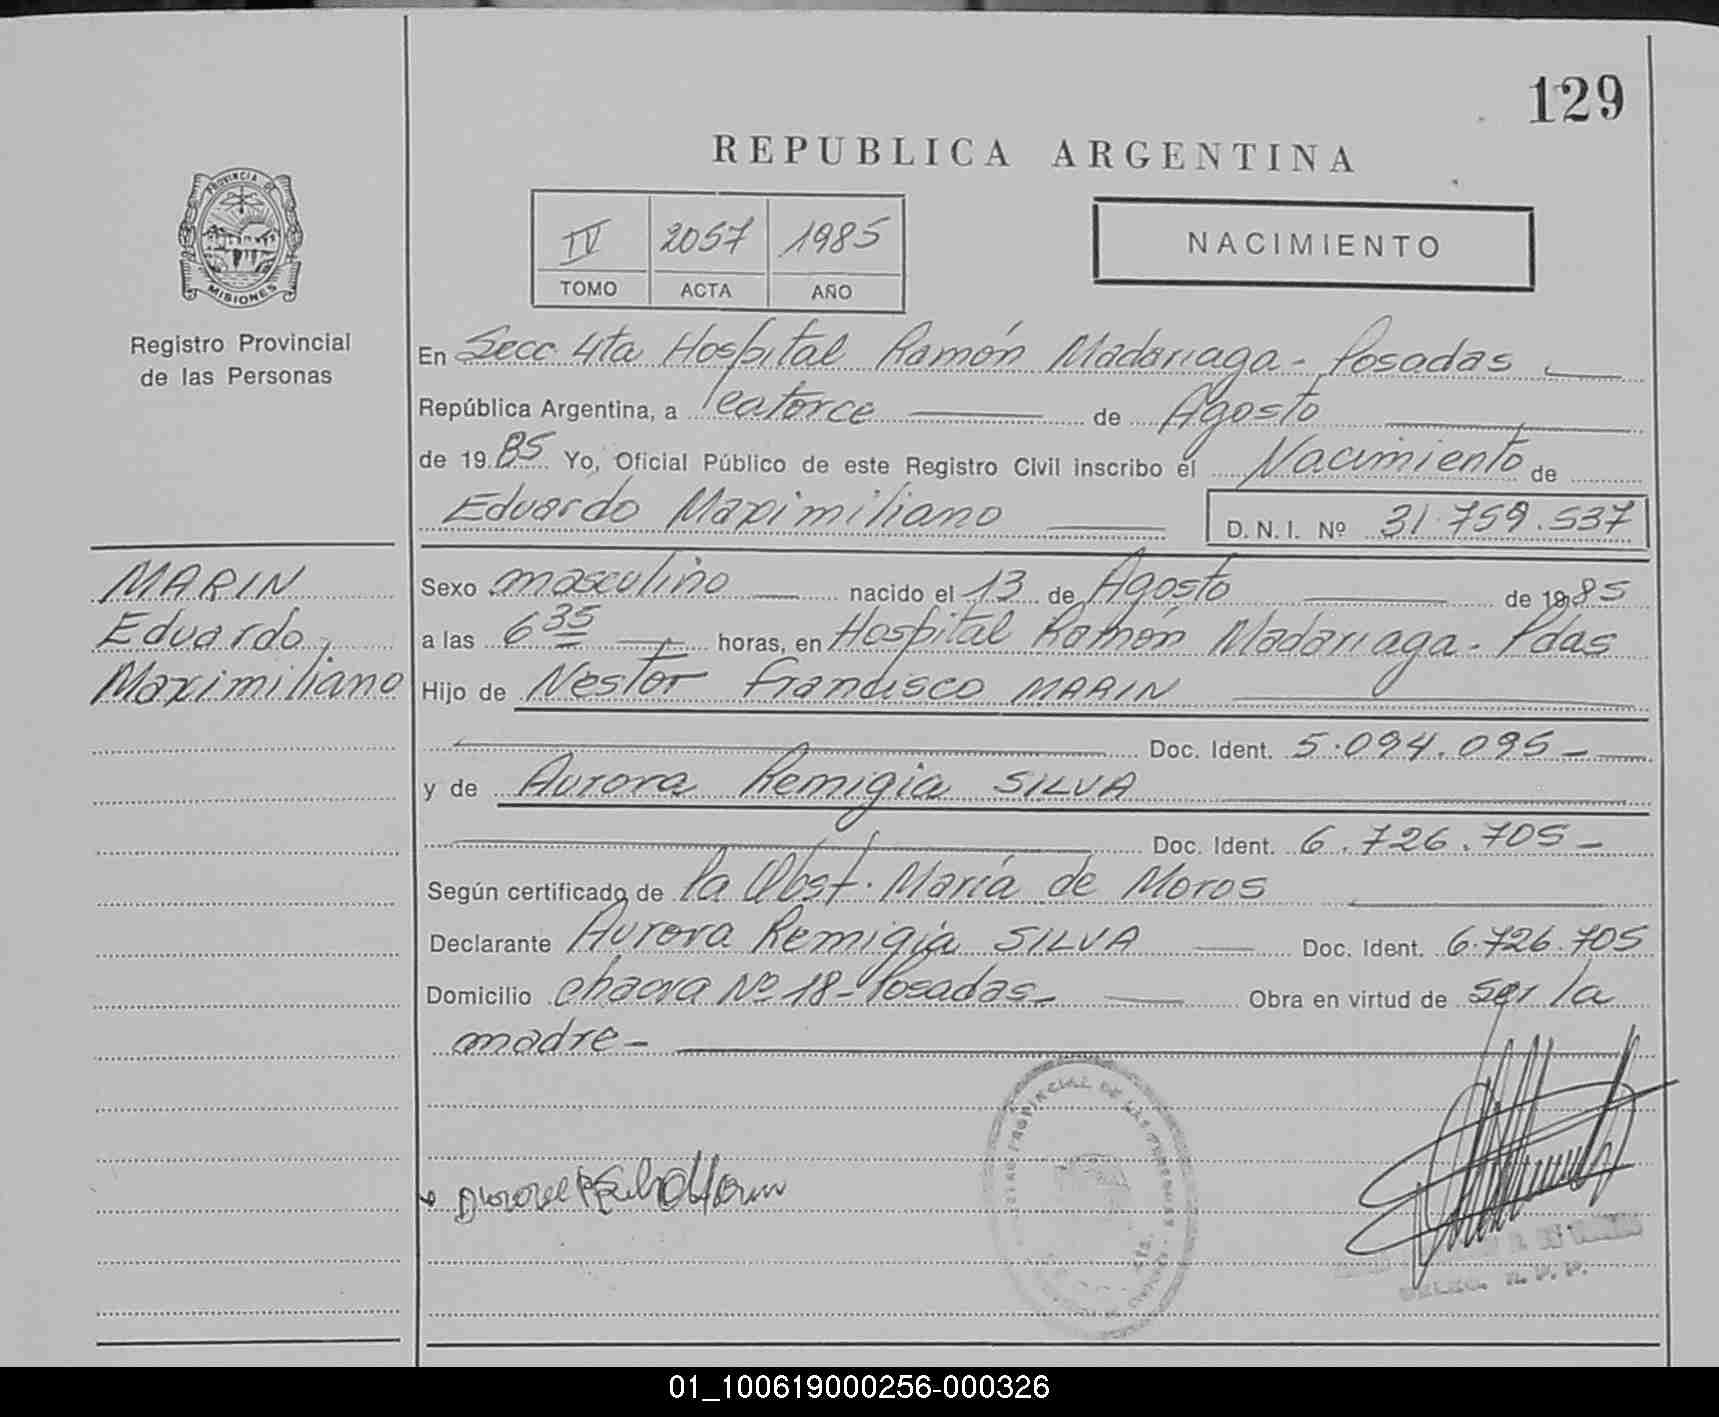 129
REPUBLICA ARGENTINA
PROVINCIA DE
MISIONES
Registro Provincial
de las Personas
IV 2057 1985
TOMO ACTA AÑO
NACIMIENTO
En Secc 4ta Hospital Ramón Madariaga - Posadas
República Argentina, a catorce de Agosto
de 1985 Yo, Oficial Público de este Registro Civil inscribo el Nacimiento de
Eduardo Maximiliano D.N.I. Nº 31.759.537
MARIN
Eduardo
Maximiliano
Sexo masculino nacido el 13 de Agosto de 1985
a las 6 35 horas, en Hospital Ramón Madariaga - Pdas
Hijo de Nestor Francisco MARIN
Doc. Ident. 5.094.095 -
y de Aurora Remigia SILVA
Doc. Ident. 6.726.705 -
Según certificado de la Obst. María de Moros
Declarante Aurora Remigia SILVA Doc. Ident. 6.726.705
Domicilio chacra Nº 18 - Posadas - Obra en virtud de ser la
madre -
PROVINCIAL DE LAS
01_100619000256-000326